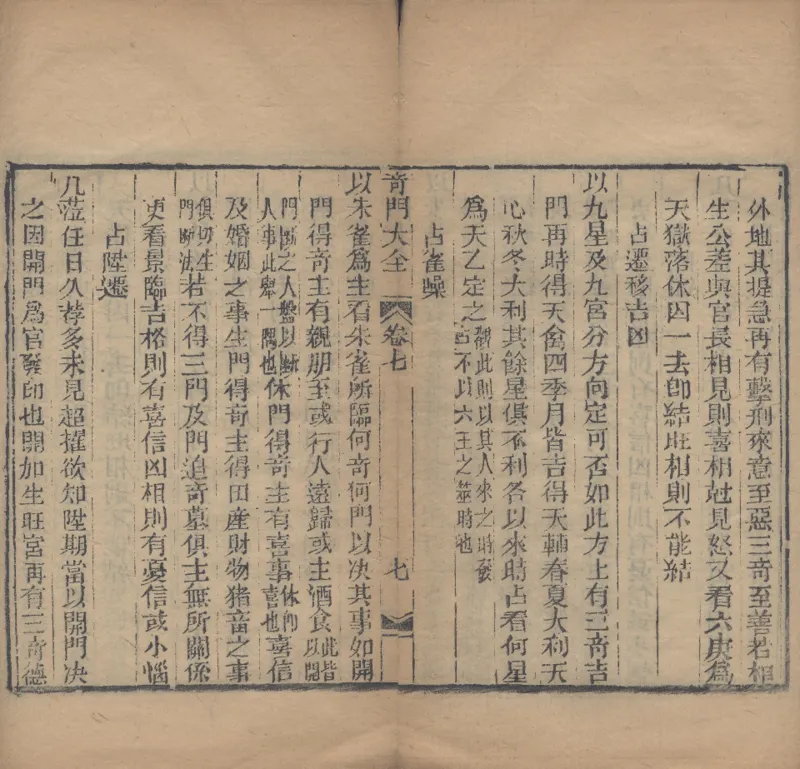 外地其提急再有擊刑來意至惡三奇至善若相
生公差與官長相見則喜相尅見怒又看六庚爲
天獄落休囚一去卽結旺相則不能結
占遷移吉凶
以九星及九宮分方向定可否如此方上有三奇吉
門再時得天禽四季月皆吉得天輔春夏大利天
心秋冬大利其餘星俱不利各以來時占看何星
爲天乙定之觀此則以其人來之時發
占雀噪
奇門大全
卷七
七
以朱雀爲主看朱雀所臨何奇何門以决其事如開
門得奇主有親朋至或行人遠歸或主酒食此皆以開
門斷之人盤以斷人事此舉一隅也休門得奇主有喜事休卽喜也喜信
及婚姻之事生門得奇主得田産財物猪畜之事
俱切生門斷法若不得三門及門迫奇墓俱主無所關係
更看景臨吉格則有喜信凶相則有憂信或小惱
占陞遷
凡蒞任日久荐多未見超擢欲知陞期當以開門决
之因開門爲官發卽也開加生旺宮再有三奇德